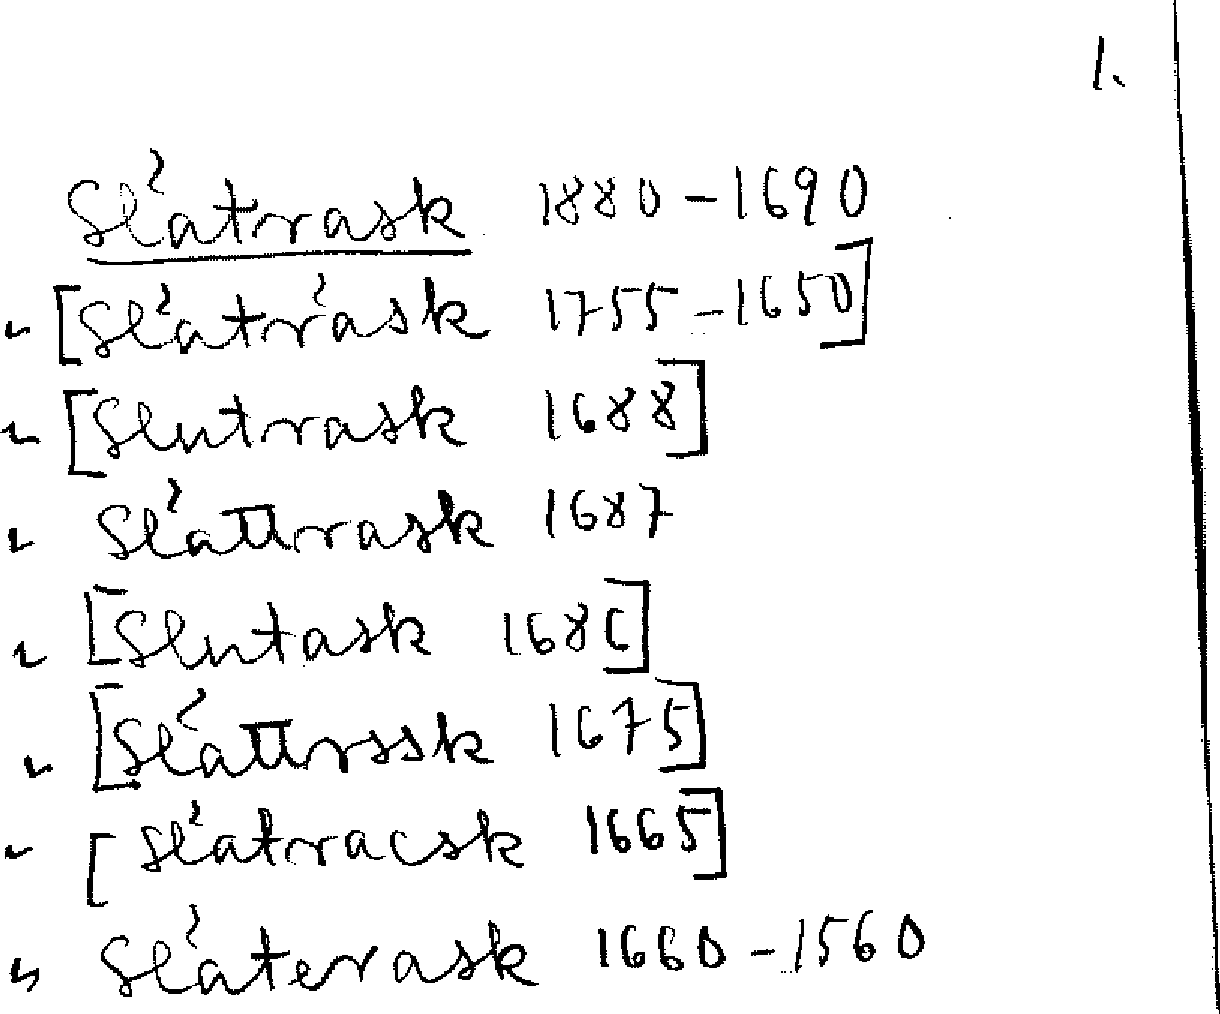 1.
Slåtrask 1880-1690
[Slåtråsk 1755-1650]
[Slutrask 1688]
Slåttrask 1687
[Slutask 1686]
[Slåttrssk 1675]
[Slåtracsk 1665]
Slåterask 1660-1560